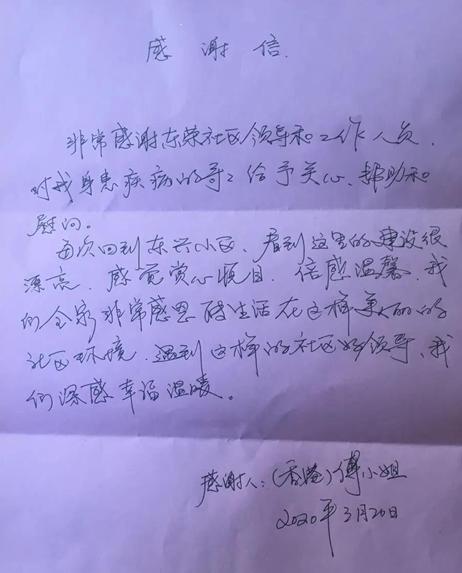 感谢信.
非常感谢东荣社区领导和工作人员,
对我身患疾病的哥哥给予关心、帮助和
慰问。
每次回到东兴小区、看到这里的建设很
漂亮、感觉赏心悦目、倍感温馨、我
们全家非常感恩能生活在这样美丽的
社区环境、遇到这样的社区好领导、我
们深感幸福温暖。
感谢人:(香港)傅小姐
2020年3月20日